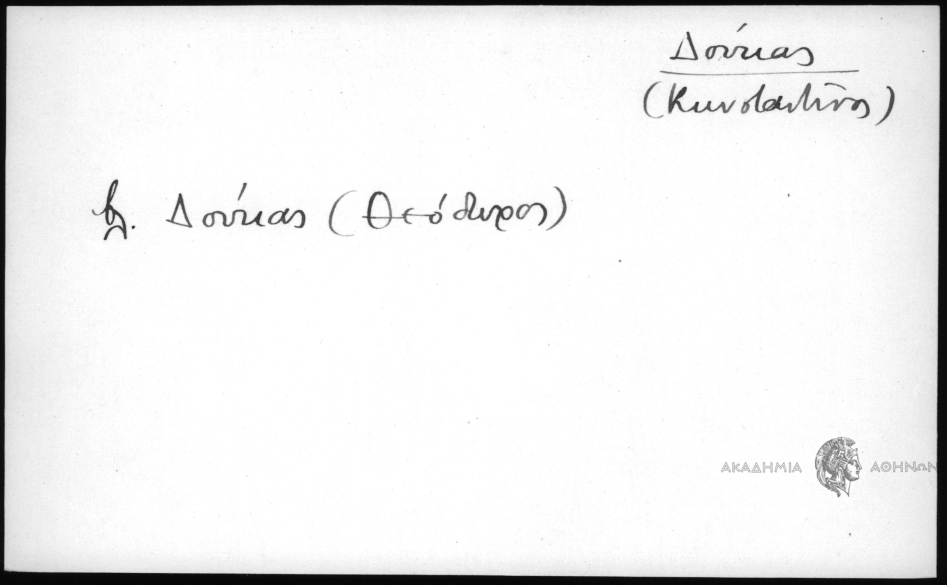 Δούκας
(Κωνσταντῖνος)
βλ. Δούκας (Θεόδωρος)
ΑΚΑΔΗΜΙΑ ΑΘΗΝΩΝ